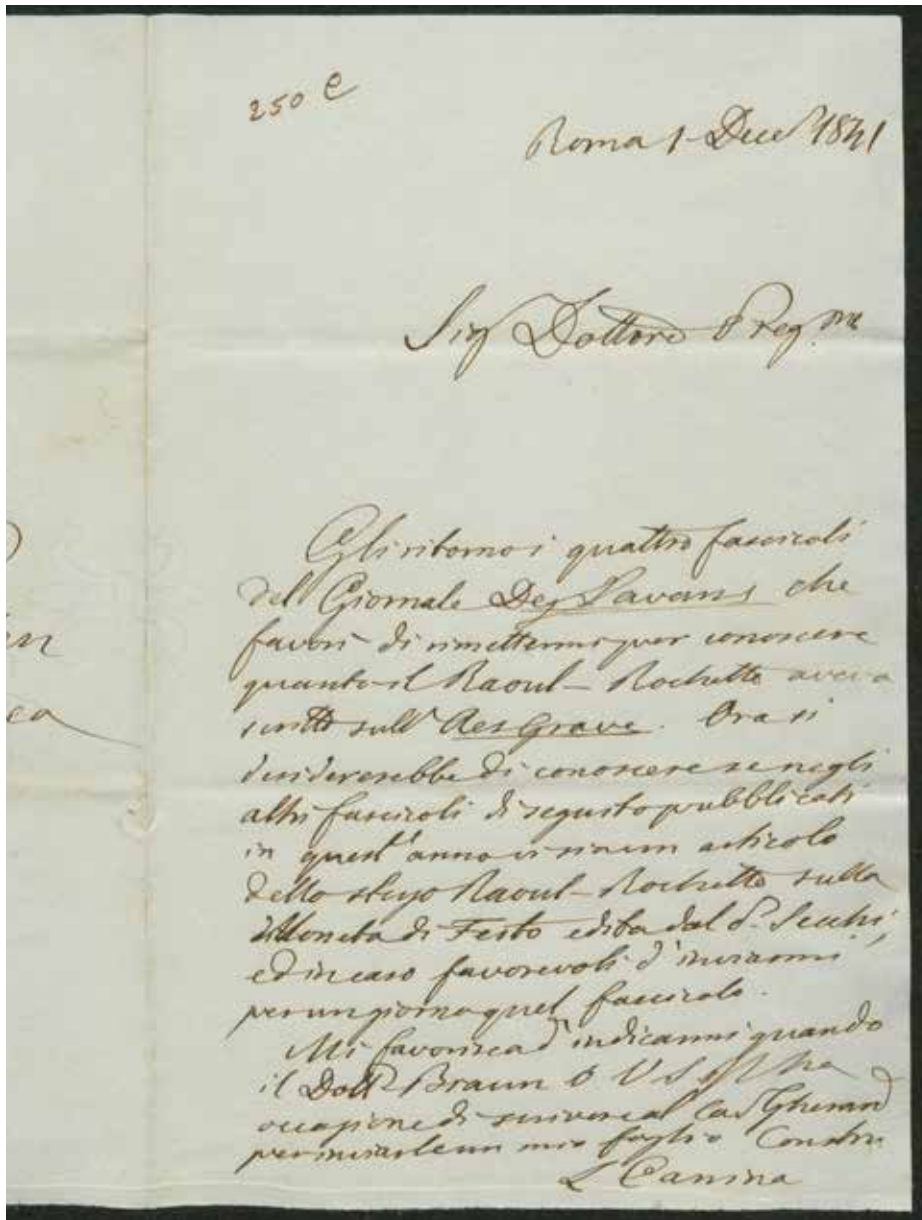 250 e
Roma 1 Dec 1841
Sig Dottore Preg.me
Gli ritorno i quattro fascicoli
del Giornale Des Savans che
favorì di rimettermi per conoscere
quanto il Raoul-Rochette aveva
scritto sull' Aes Grave. Ora si
desidererebbe di conoscere se negli
altri fascicoli di seguito pubblicati
in quest' anno vi sia un articolo
dello stesso Raoul-Rochette sulla
Moneta di Festo edita dal P. Secchi,
ed in caso favorevole d' inviarmi
per un giorno quel fascicolo.
Mi favorisca d' indicarmi quando
il Dott Braun o V S ha
occasione di scrivere al Cav Gherard
per inviarle un mio foglio
L Canina
en
ca